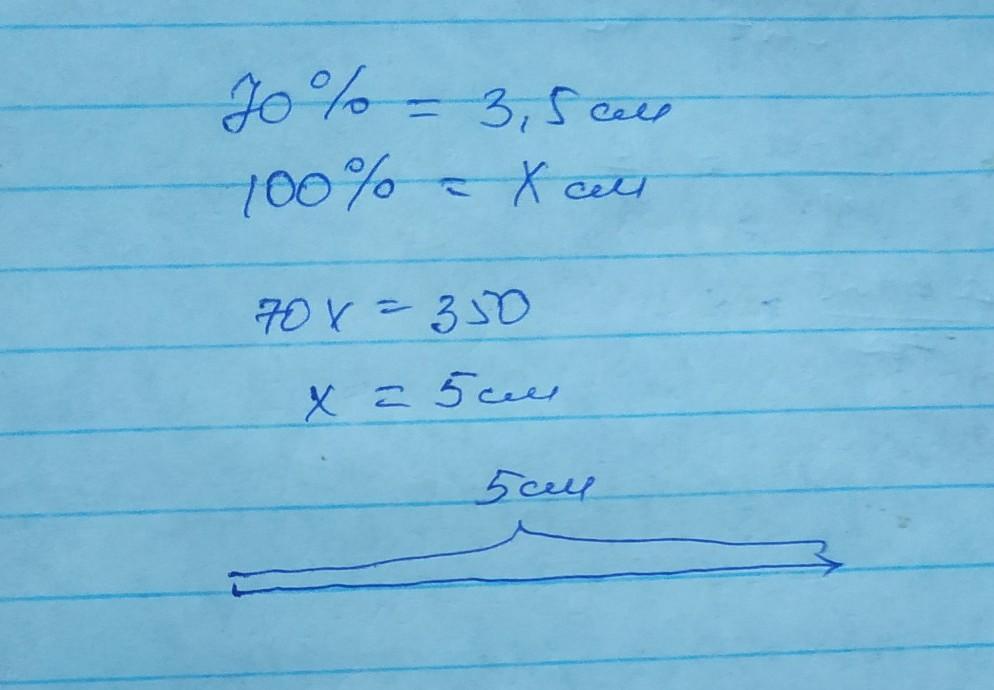 70% = 3,5 см
100% = X см
70x = 350
x = 5 см
5 см